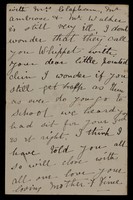 with Mrs Clapham, Mr
Ambrose, & Mr Walker
is still very ill. I don't
wonder that they call
you Whippet with
your dear little pointed
chin I wonder if you
still get
you do go to
school we heard
had put your
so right, I think I
have told you all
so will close with
all our love your
loving Mother & Jime